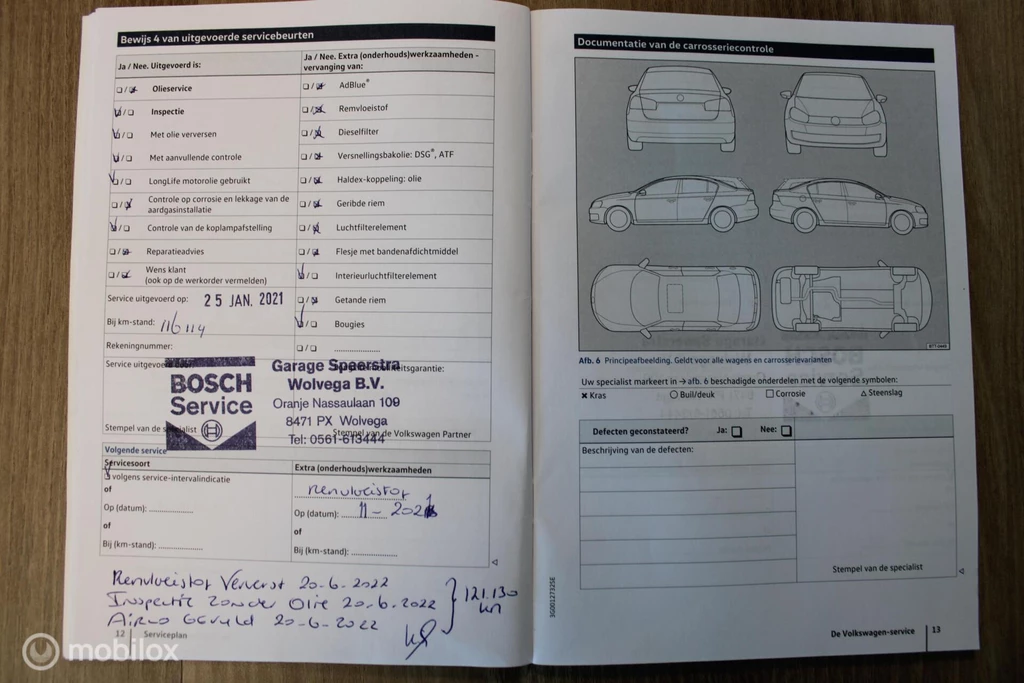 Bewijs 4 van uitgevoerde servicebeurten
Ja / Nee. Uitgevoerd is:
Ja / Nee. Extra (onderhouds)werkzaamheden - vervanging van:
Olieservice
AdBlue®
Inspectie
Remvloeistof
Met olie verversen
Dieselfilter
Met aanvullende controle
Versnellingsbakolie: DSG®, ATF
LongLife motorolie gebruikt
Haldex-koppeling: olie
Controle op corrosie en lekkage van de aardgasinstallatie
Geribde riem
Controle van de koplampafstelling
Luchtfilterelement
Reparatieadvies
Flesje met bandenafdichtmiddel
Wens klant
(ook op de werkorder vermelden)
Interieurluchtfilterelement
Service uitgevoerd op: 25 JAN. 2021
Getande riem
Bij km-stand: 116114
Bougies
Rekeningnummer:
Service uitgevoerd
BOSCH
Service
Garage Speerstra
Wolvega B.V.
Oranje Nassaulaan 109
8471 PX Wolvega
Tel: 0561-613444
Stempel van de specialist
Stempel van de Volkswagen Partner
Volgende service
Servicesoort
Extra (onderhouds)werkzaamheden
volgens service-intervalindicatie
Remvloeistof
of
Op (datum):
Op (datum): 11-2021
of
of
Bij (km-stand):
Bij (km-stand):
Remvloeistof Ververst 20-6-2022
Inspectie zonder Olie 20.6.2022
Airco Gevuld 20-6-2022
121.130 km
12 Serviceplan
mobilox
Documentatie van de carrosseriecontrole
Afb. 6 Principeafbeelding. Geldt voor alle wagens en carrosserievarianten
Uw specialist markeert in → afb. 6 beschadigde onderdelen met de volgende symbolen:
Kras
Buil/deuk
Corrosie
Steenslag
Defecten geconstateerd? Ja: Nee:
Beschrijving van de defecten:
Stempel van de specialist
3G0012732SE
De Volkswagen-service 13